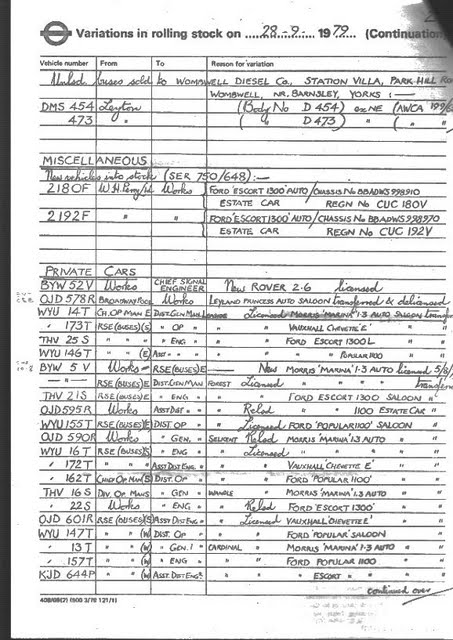 Variations in rolling stock on 28-9- 1979 (Continuation
Vehicle number From To Reason for variation
Unlsd. buses sold to WOMBWELL DIESEL Co., STATION VILLA, PARK HILL
WOMBWELL, NR. BARNSLEY, YORKS :—
DMS 454 Leyton (Body No D 454) ex NE (AWCA
473 " ( " D 473) " ( "
MISCELLANEOUS
New vehicles into stock (SER 750/648):—
2180F W.H.Perry Ltd Works FORD 'ESCORT 1300' AUTO / CHASSIS No BBADWS 998910
ESTATE CAR REGN No CUC 180V
2192F " " FORD 'ESCORT 1300' AUTO / CHASSIS No BBADWS 998970
ESTATE CAR REGN No CUC 192V
PRIVATE CARS
BYW 52V Works CHIEF SIGNAL ENGINEER New ROVER 2·6 licensed
OJD 578R BROADWAY POOL Works LEYLAND PRINCESS AUTO SALOON transferred & delicensed
WYU 14T CH. OP MAN E DIST GEN MAN Licensed MORRIS 'MARINA' 1·3 AUTO SALOON
" 173T RSE (BUSES)(S) " OP " " VAUXHALL CHEVETTE 'E' " "
THV 25 S " " " ENG " " FORD ESCORT 1300L " "
WYU 146T " " (E) ASST " " " " POPULAR 1100 " "
BYW 5 V Works RSE (BUSES) E — New MORRIS 'MARINA' 1·3 AUTO licensed
—"— RSE (BUSES)E DIST. GEN MAN FOREST Licensed "
THV 21S RSE (BUSES)E " ENG " " FORD ESCORT 1300 SALOON "
OJD 595R Works ASST DIST " " Relsd " 1100 ESTATE CAR "
WYU 155T RSE (BUSES)E DIST OP " Licensed FORD 'POPULAR 1100' SALOON "
OJD 590R Works " GEN. " SELKENT Relsd MORRIS 'MARINA' 1·3 AUTO "
WYU 16T RSE (BUSES)(S) " ENG " Licensed " " "
" 172T " " ASST DIST ENG. " " VAUXHALL 'CHEVETTE E' " "
" 162T CHIEF OP MAN(S) DIST. OP " " FORD 'POPULAR 1100' " "
THV 16S DIV. OP MAN " GEN " WANDLE " MORRIS 'MARINA' 1·3 AUTO " "
" 22S Works " ENG " " Relsd FORD 'ESCORT 1300' " "
OJD 601R RSE (BUSES)(S) ASST DIST ENG " Licensed VAUXHALL 'CHEVETTE E' " "
WYU 147T " " (W) DIST. OP " " FORD 'POPULAR' SALOON " "
" 13T " " (W) " GEN. " CARDINAL " MORRIS 'MARINA' 1·3 AUTO " "
" 157T " " (W) " ENG " " FORD POPULAR 1100 " "
KJD 644P " " (W) ASST DIST ENG. " " " ESCORT " " "
continued over